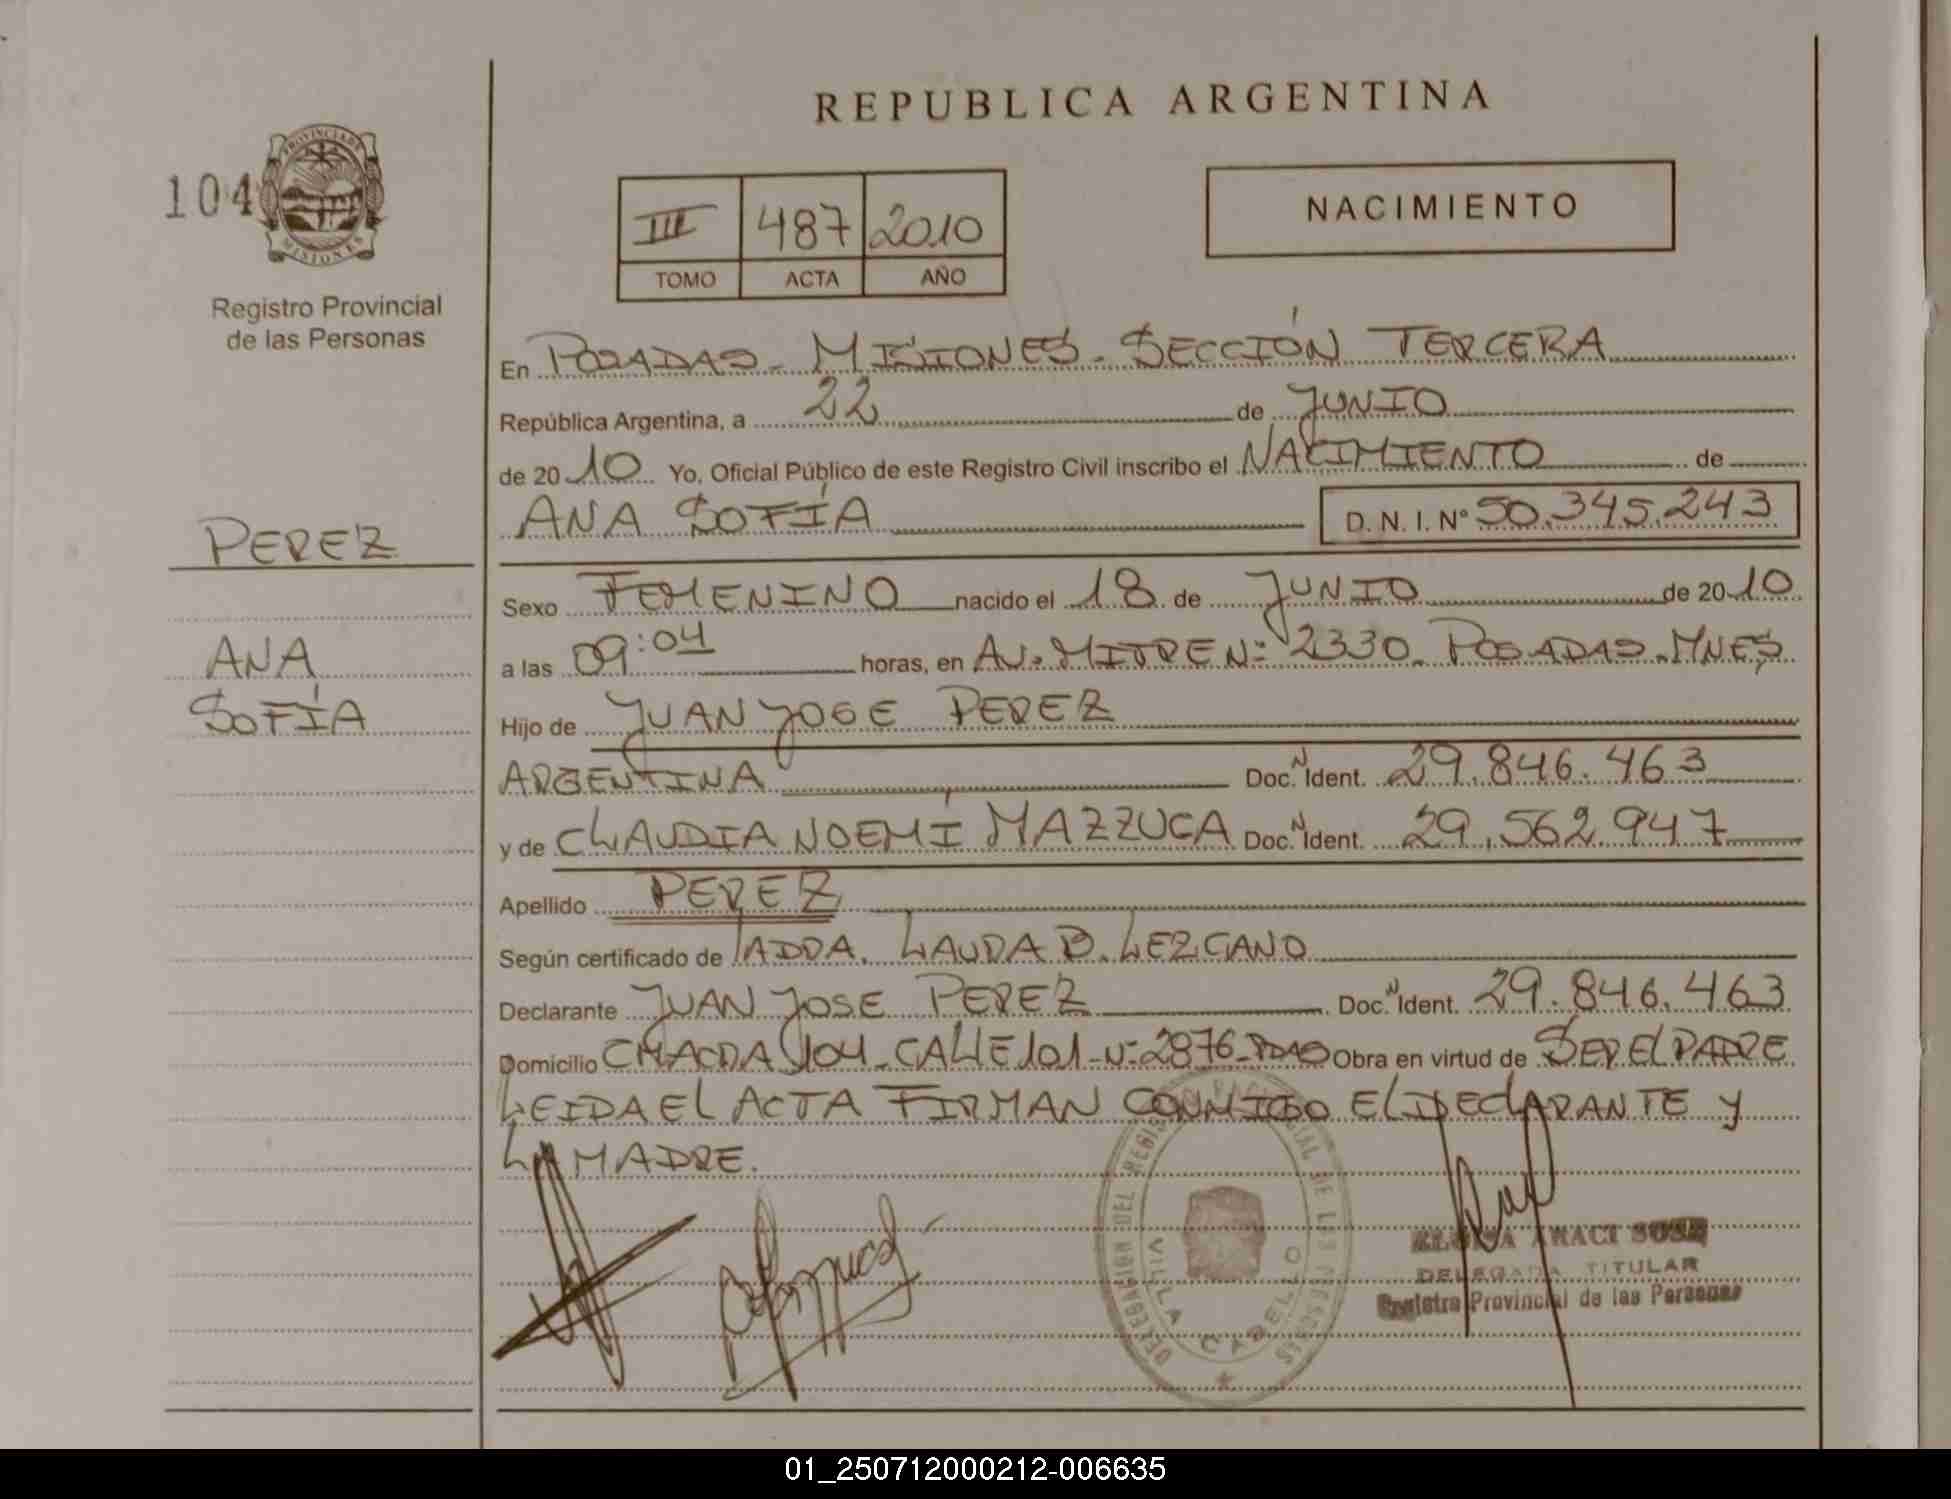 REPUBLICA ARGENTINA
104
PROVINCIA DE
MISIONES
Registro Provincial
de las Personas
III 487 2010
TOMO ACTA AÑO
NACIMIENTO
En POSADAS - MISIONES - SECCIÓN TERCERA
República Argentina, a 22 de JUNIO
de 2010 Yo, Oficial Público de este Registro Civil inscribo el NACIMIENTO de
ANA SOFÍA D. N. I. Nº 50.345.243
PEREZ
ANA
SOFÍA
Sexo FEMENINO nacido el 18 de JUNIO de 2010
a las 09:04 horas, en AV. MITRE Nº 2330 - POSADAS - MNES
Hijo de JUAN JOSE PEREZ
ARGENTINA Doc. N Ident. 29.846.463
y de CLAUDIA NOEMÍ MAZZUCA Doc. N Ident. 29.562.947
Apellido PEREZ
Según certificado de LAURA B. LEZCANO
Declarante JUAN JOSE PEREZ Doc. N Ident. 29.846.463
Domicilio CHACRA 104 - CALLE 101 - Nº 2876 - PDAS Obra en virtud de SER EL PADRE
LEIDA EL ACTA FIRMAN CONMIGO EL DECLARANTE Y
LA MADRE.
DELEGACION DEL REGISTRO PROVINCIAL DE LAS PERSONAS
VILLA CABELLO
ARACI SOSA
DELEGADA TITULAR
Registro Provincial de las Personas
01_250712000212-006635